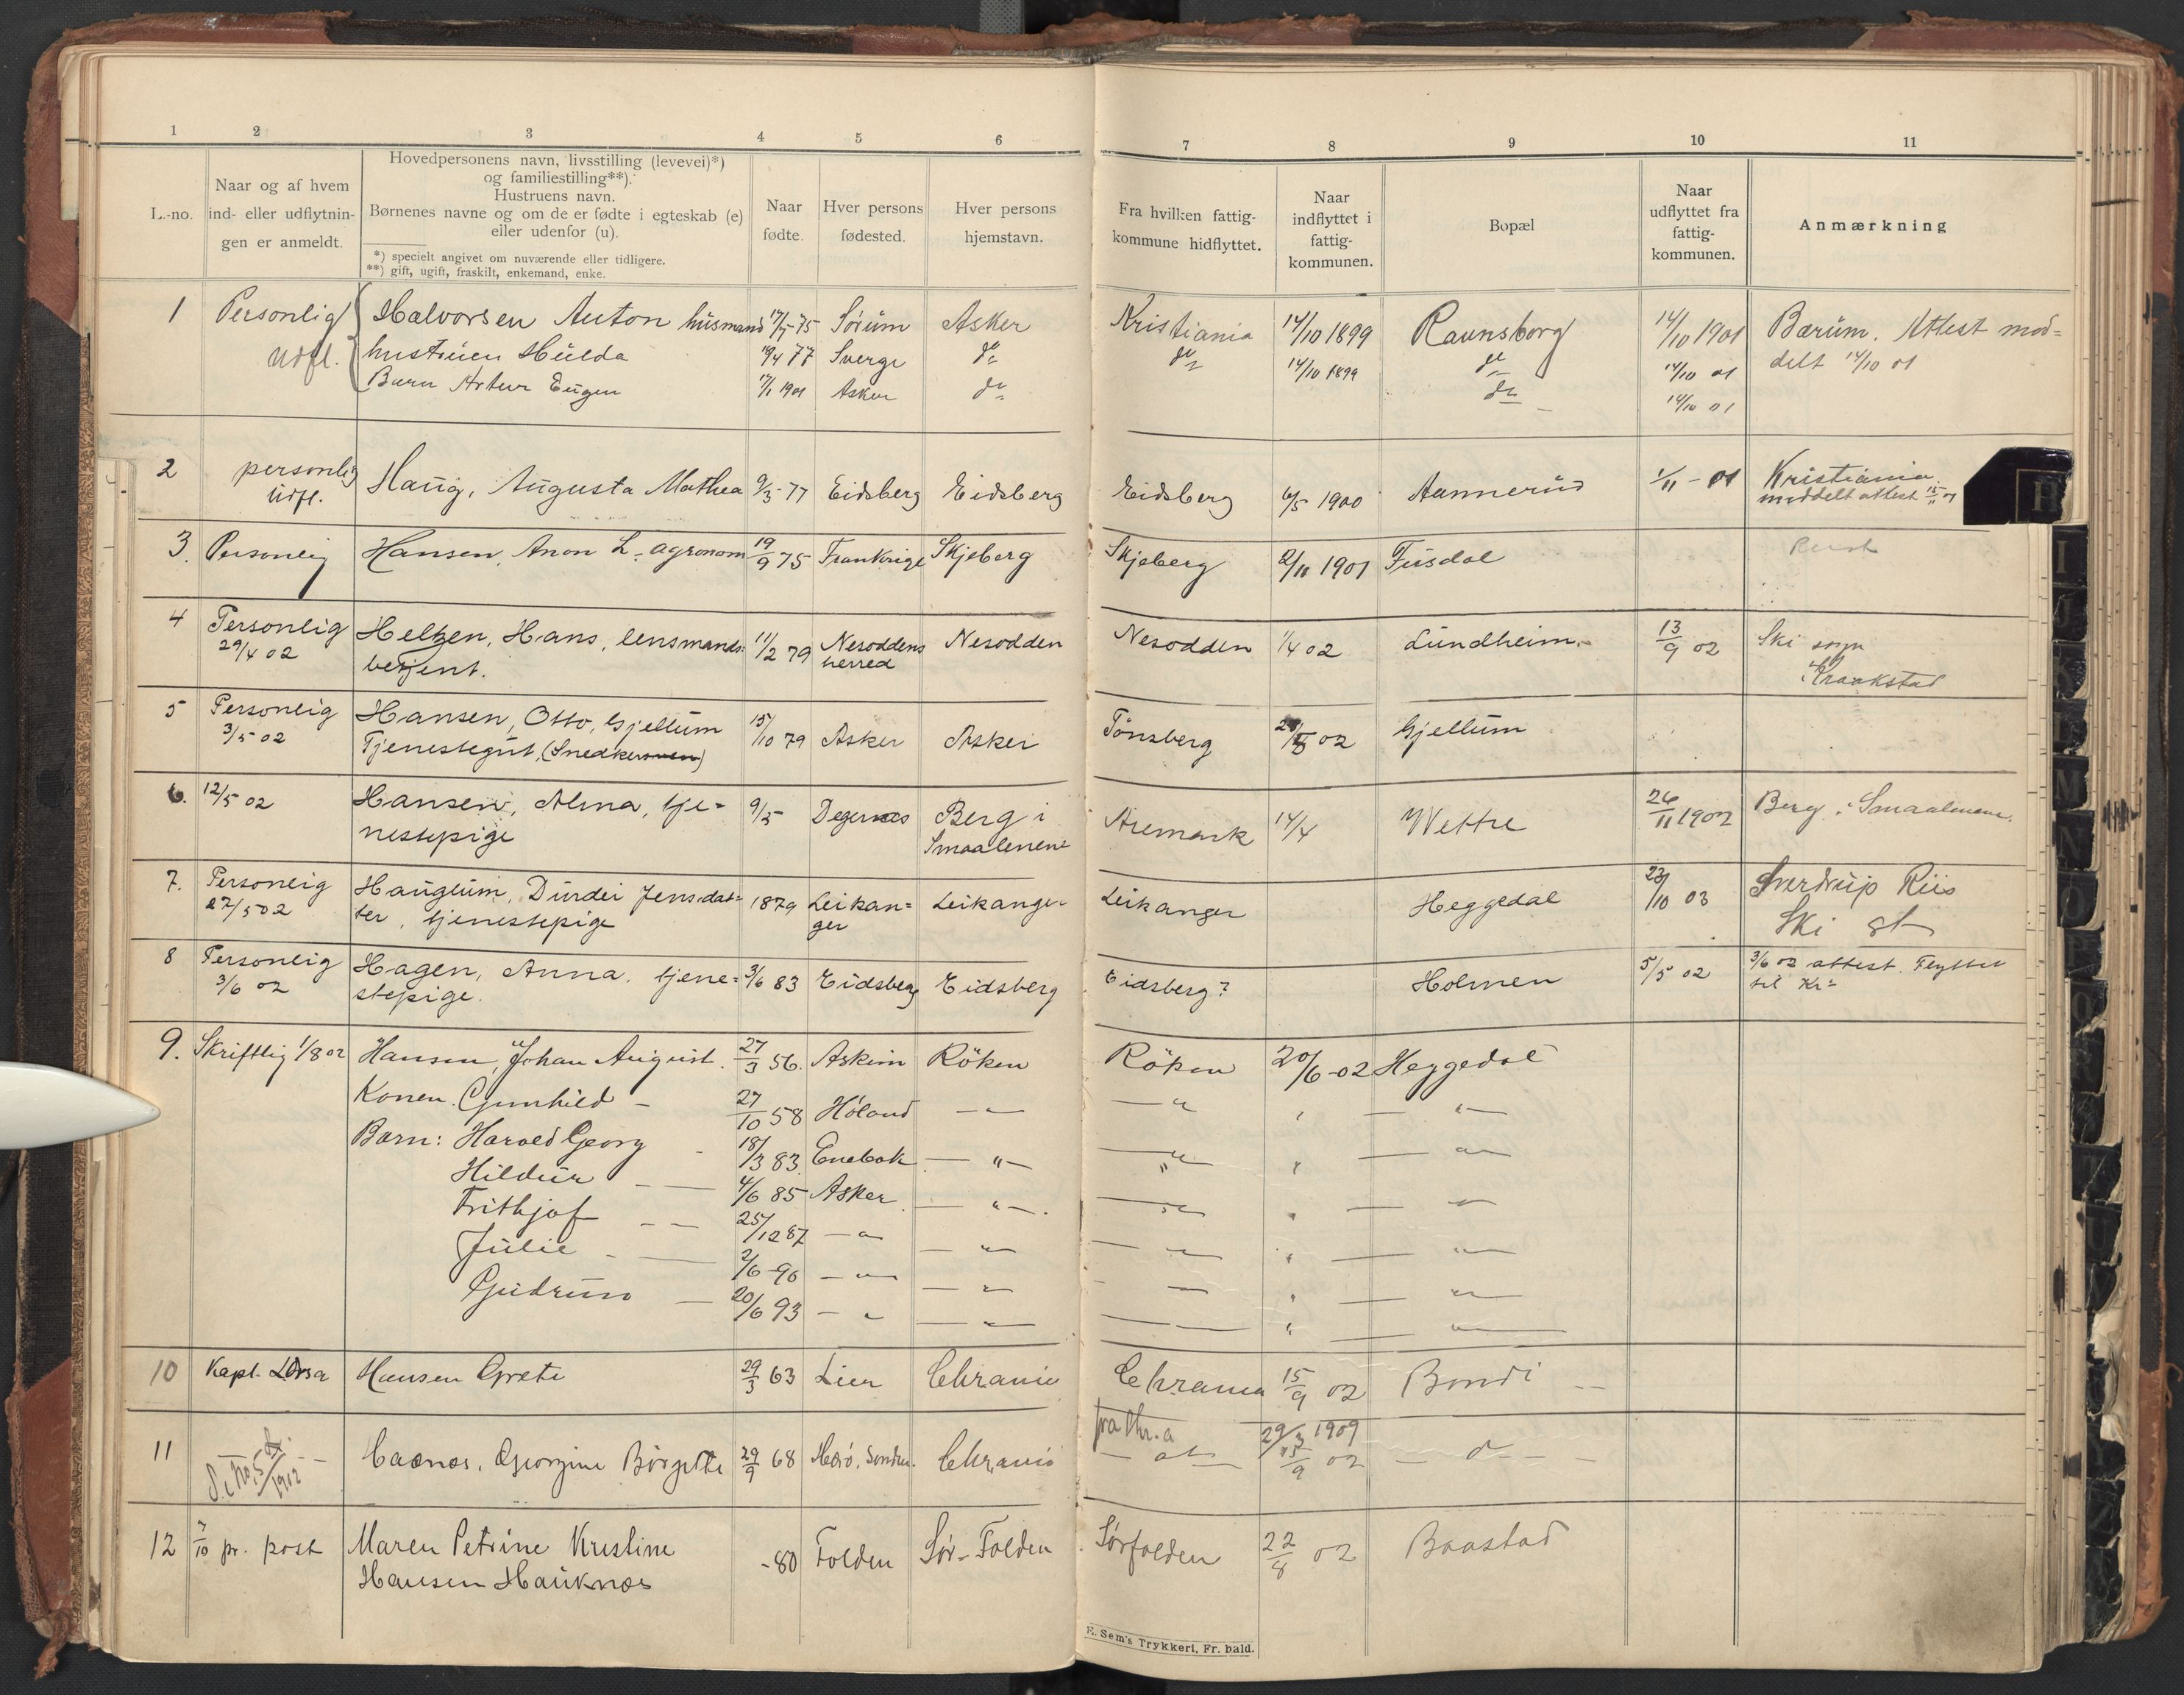 1 2 3 4 5 6 7 8 9 10 11
L.-no.
Naar og af hvem
ind- eller udflytnin-
gen er anmeldt.
Hovedpersonens navn, livsstilling (levevei)*)
og familiestilling**).
Hustruens navn.
Børnenes navne og om de er fødte i egteskab (e)
eller udenfor (u).
*) specielt angivet om nuværende eller tidligere.
**) gift, ugift, fraskilt, enkemand, enke.
Naar
fødte.
Hver persons
fødested.
Hver persons
hjemstavn.
Fra hvilken fattig-
kommune hidflyttet.
Naar
indflyttet i
fattig-
kommunen.
Bopæl
Naar
udflyttet fra
fattig-
kommunen.
Anmærkning
1 Personlig Halvorsen Anton husmand 75 Sørum Asker Kristiania 14/10 1899 Ravnsborg 14/10 1901 Bærum. Attest med-
udfl. hustruen Hulda 19/4 77 Sverge do do 14/10 1899 do 14/10 01 delt 14/10 01
Barn Artur Eugen 17/1 1901 Asker do do 14/10 01
2 personlig Haug, Augusta Mathea 9/3 - 77 Eidsberg Eidsberg Eidsberg 6/5 1900 Aannerud 1/11 - 01 Kristiania.
udfl. meddelt attest 15/11 01
3. Personlig Hansen, Anon L. agronom 19/9 75 Frankrige Skjeberg Skjeberg 2/11 1901 Fusdal
4 Personlig Heltzen, Hans, lensmands- 11/2 79 Nesoddens Nesodden Nesodden 1/4 02 Lundheim. 13/9 02 Ski sogn
29/4 02 betjent. herred i Kraakstad
5 Personlig Hansen, Otto, Gjellum 15/10 79 Asker Asker Tönsberg 02 Gjellum
3/5 02 Tjenestegut, (Snedkersven)
6. 12/5 02 Hansen, Alma, tje- 9/5 Degernes Berg i Aremark 14/4 Wettre 26/11 1902 Berg i Smaalenene.
nestepige Smaalenene
7. Personlig Hauglum, Durdei Jensdat- 1879 Leikan- Leikanger Leikanger Heggedal 23/10 03 Sverdrup Riis
27/5 02 ter, tjenestepige ger Ski st
8 Personlig Hagen, Anna. tjene- 3/6 83 Eidsberg Eidsberg Eidsberg? Holmen 5/5 02 3/6 02 attest. Flyttet
3/6 02 stepige. til Kr
9. Skriftlig 1/8 02 Hansen, Johan August. 27/3 56. Askim Röken Röken 20/6 - 02 Heggedal
Konen Gunhild - 27/10 58 Höland — " — — " " — " —
Barn: Harald Georg - 18/3 83 Enebak — " — — " — " — " —
Hildur — 4/6 85 Asker — " — — " — " — " —
Frithjof — 25/12 87 — " — " — — " — " — " —
Julie — 2/6 - 90 — " — — " — — " — " —
Gudrun — 20/6 93 — " — " — — " — " —
10 Kapt. Hansen Grete 29/3 63 Lier Chrania Chrania 15/9 02 Bondi
11 Georgine Börgette 29/9 68 Chrania — do — 15/9 02 — do —
fra Chr.a 29/3 1909
1912
12 7/10 pr. post Maren Petrine Kristine - 80 Folden Sör-Folden Sörfolden 22/8 02 Baastad
Hansen Hauknes
E. Sem's Trykkeri, Fr. hald.
H
I
J
K
M
N
O
P